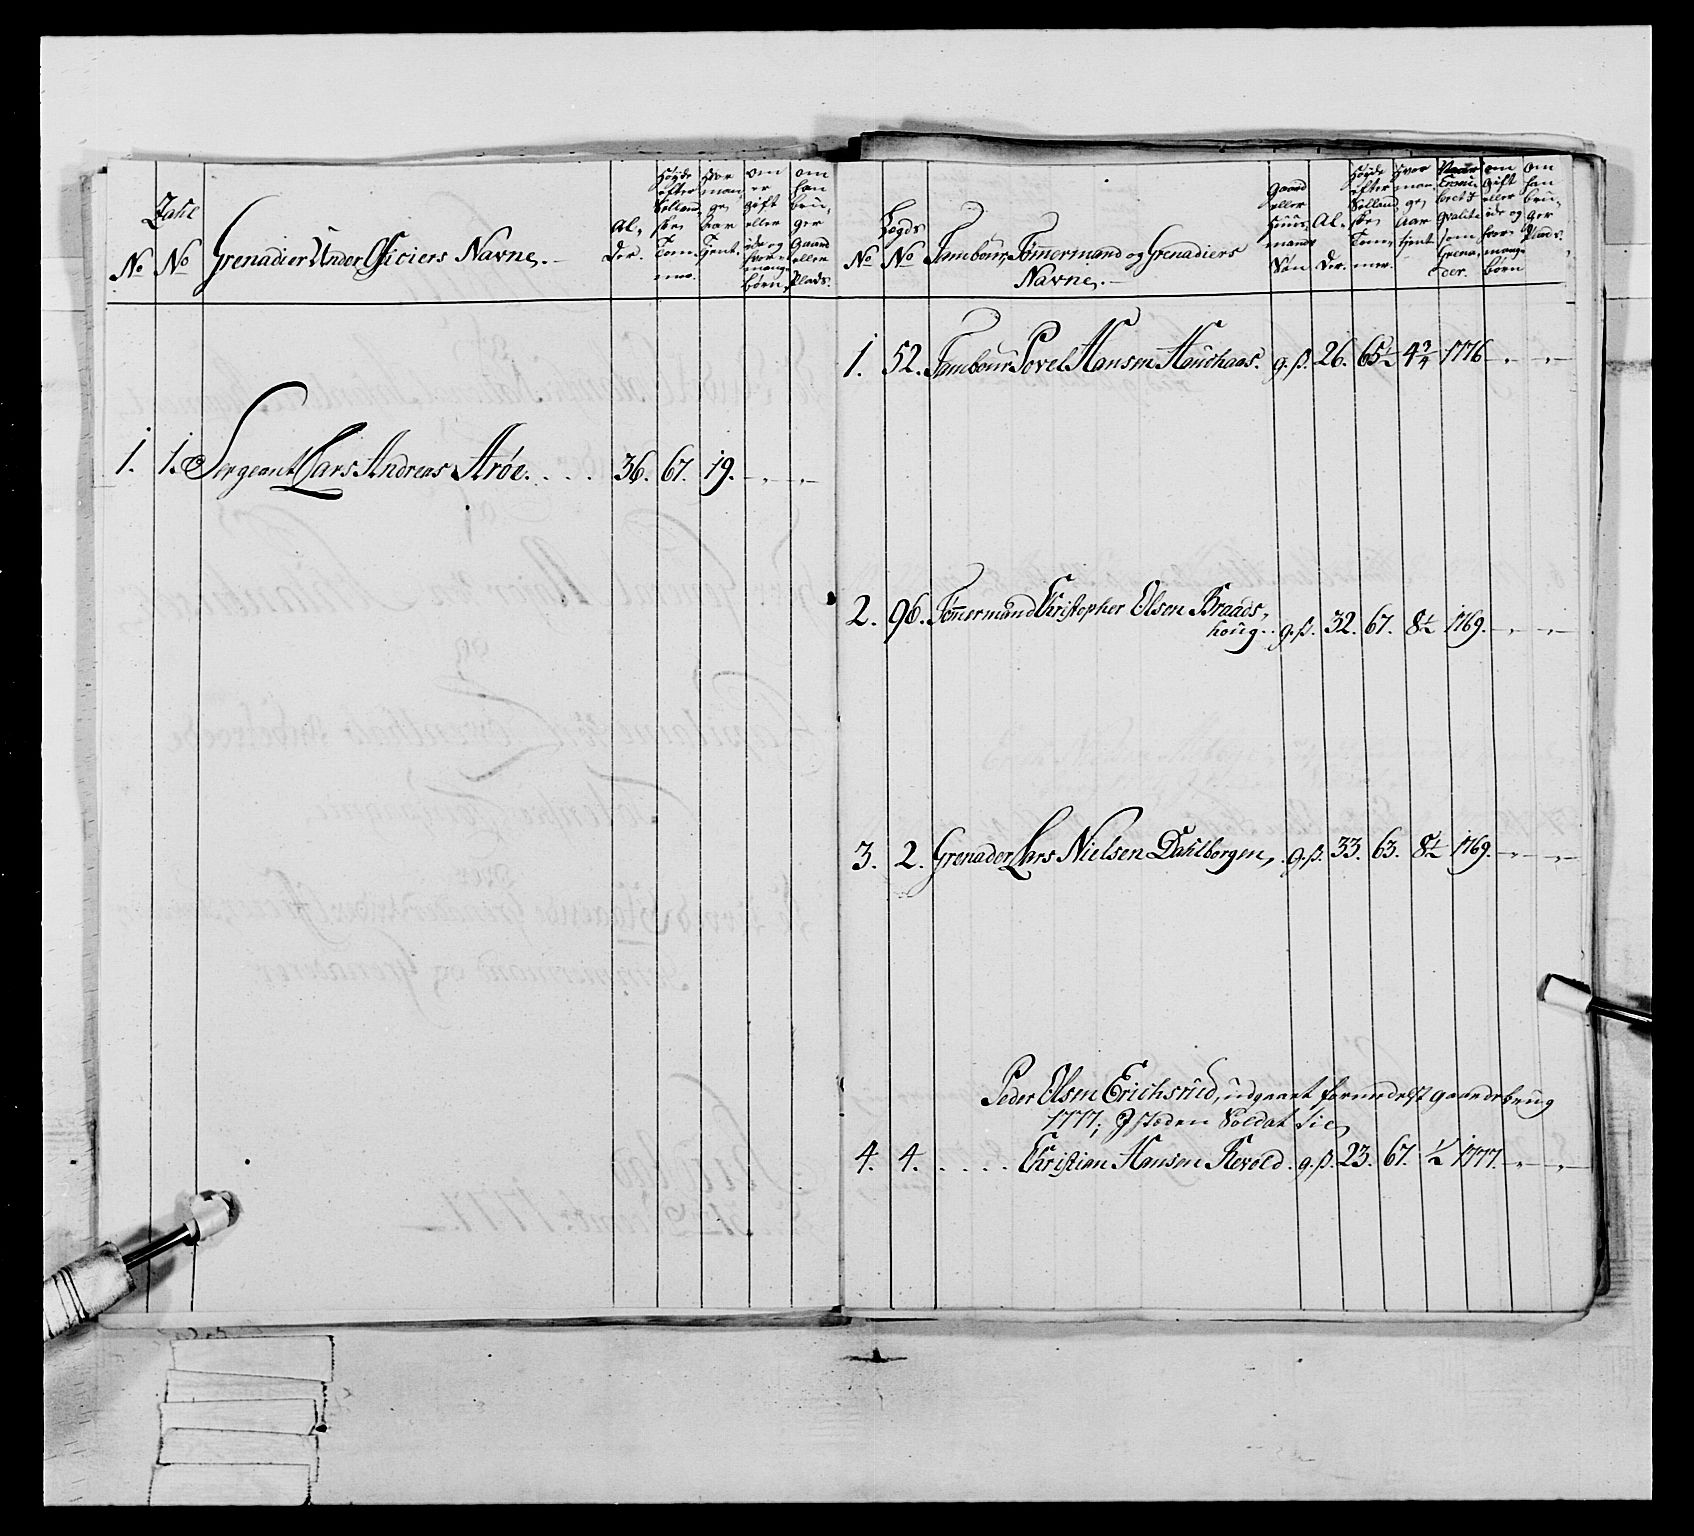 No
Zahl No
Grenadier Under Officiers Navne.
Al- der.
Høyde efter Sollandske Tommer.
Hvor mange Aar Tjent.
om er gift eller ide og hvor mange børn
om han bruger Gaard eller Plads.
1. 1. Sergeant Lars Andreas Arøe. . . . 36. 67. 19. — „ — „ —
No
Lægds No
Tambour, Tømmermand og Grenadiers
Navne.
gaard eller Huus mands Søn
Al- der.
Høyde efter Sollandske Tommer.
Hvor mange Aar tjent
qvalite som Grenader.
om gift eller ide og hvor mange børn
om han bruger Plads.
1. 52. Tambour Povel Hansen Hauchaas. g. ß. 26. 65½ 4¾ 1776 — „ — „ —
2. 96. Tømermand Christopher Olsen Braads-
houg. . g. ß. 32. 67. 8½ 1769. — „ — „ —
3. 2. Grenader Lars Nielsen Dahlborgen, g. ß. 33. 63. 8½ 1769. — „ — „ —
Peder Olsen Erichsrüd, udgaaet formedelst gaardebrug
1777; J stæden Soldat
4. 4. . . . . Christian Hansen Revold. g. ß. 23. 67. ½ 1777. — „ — „ —